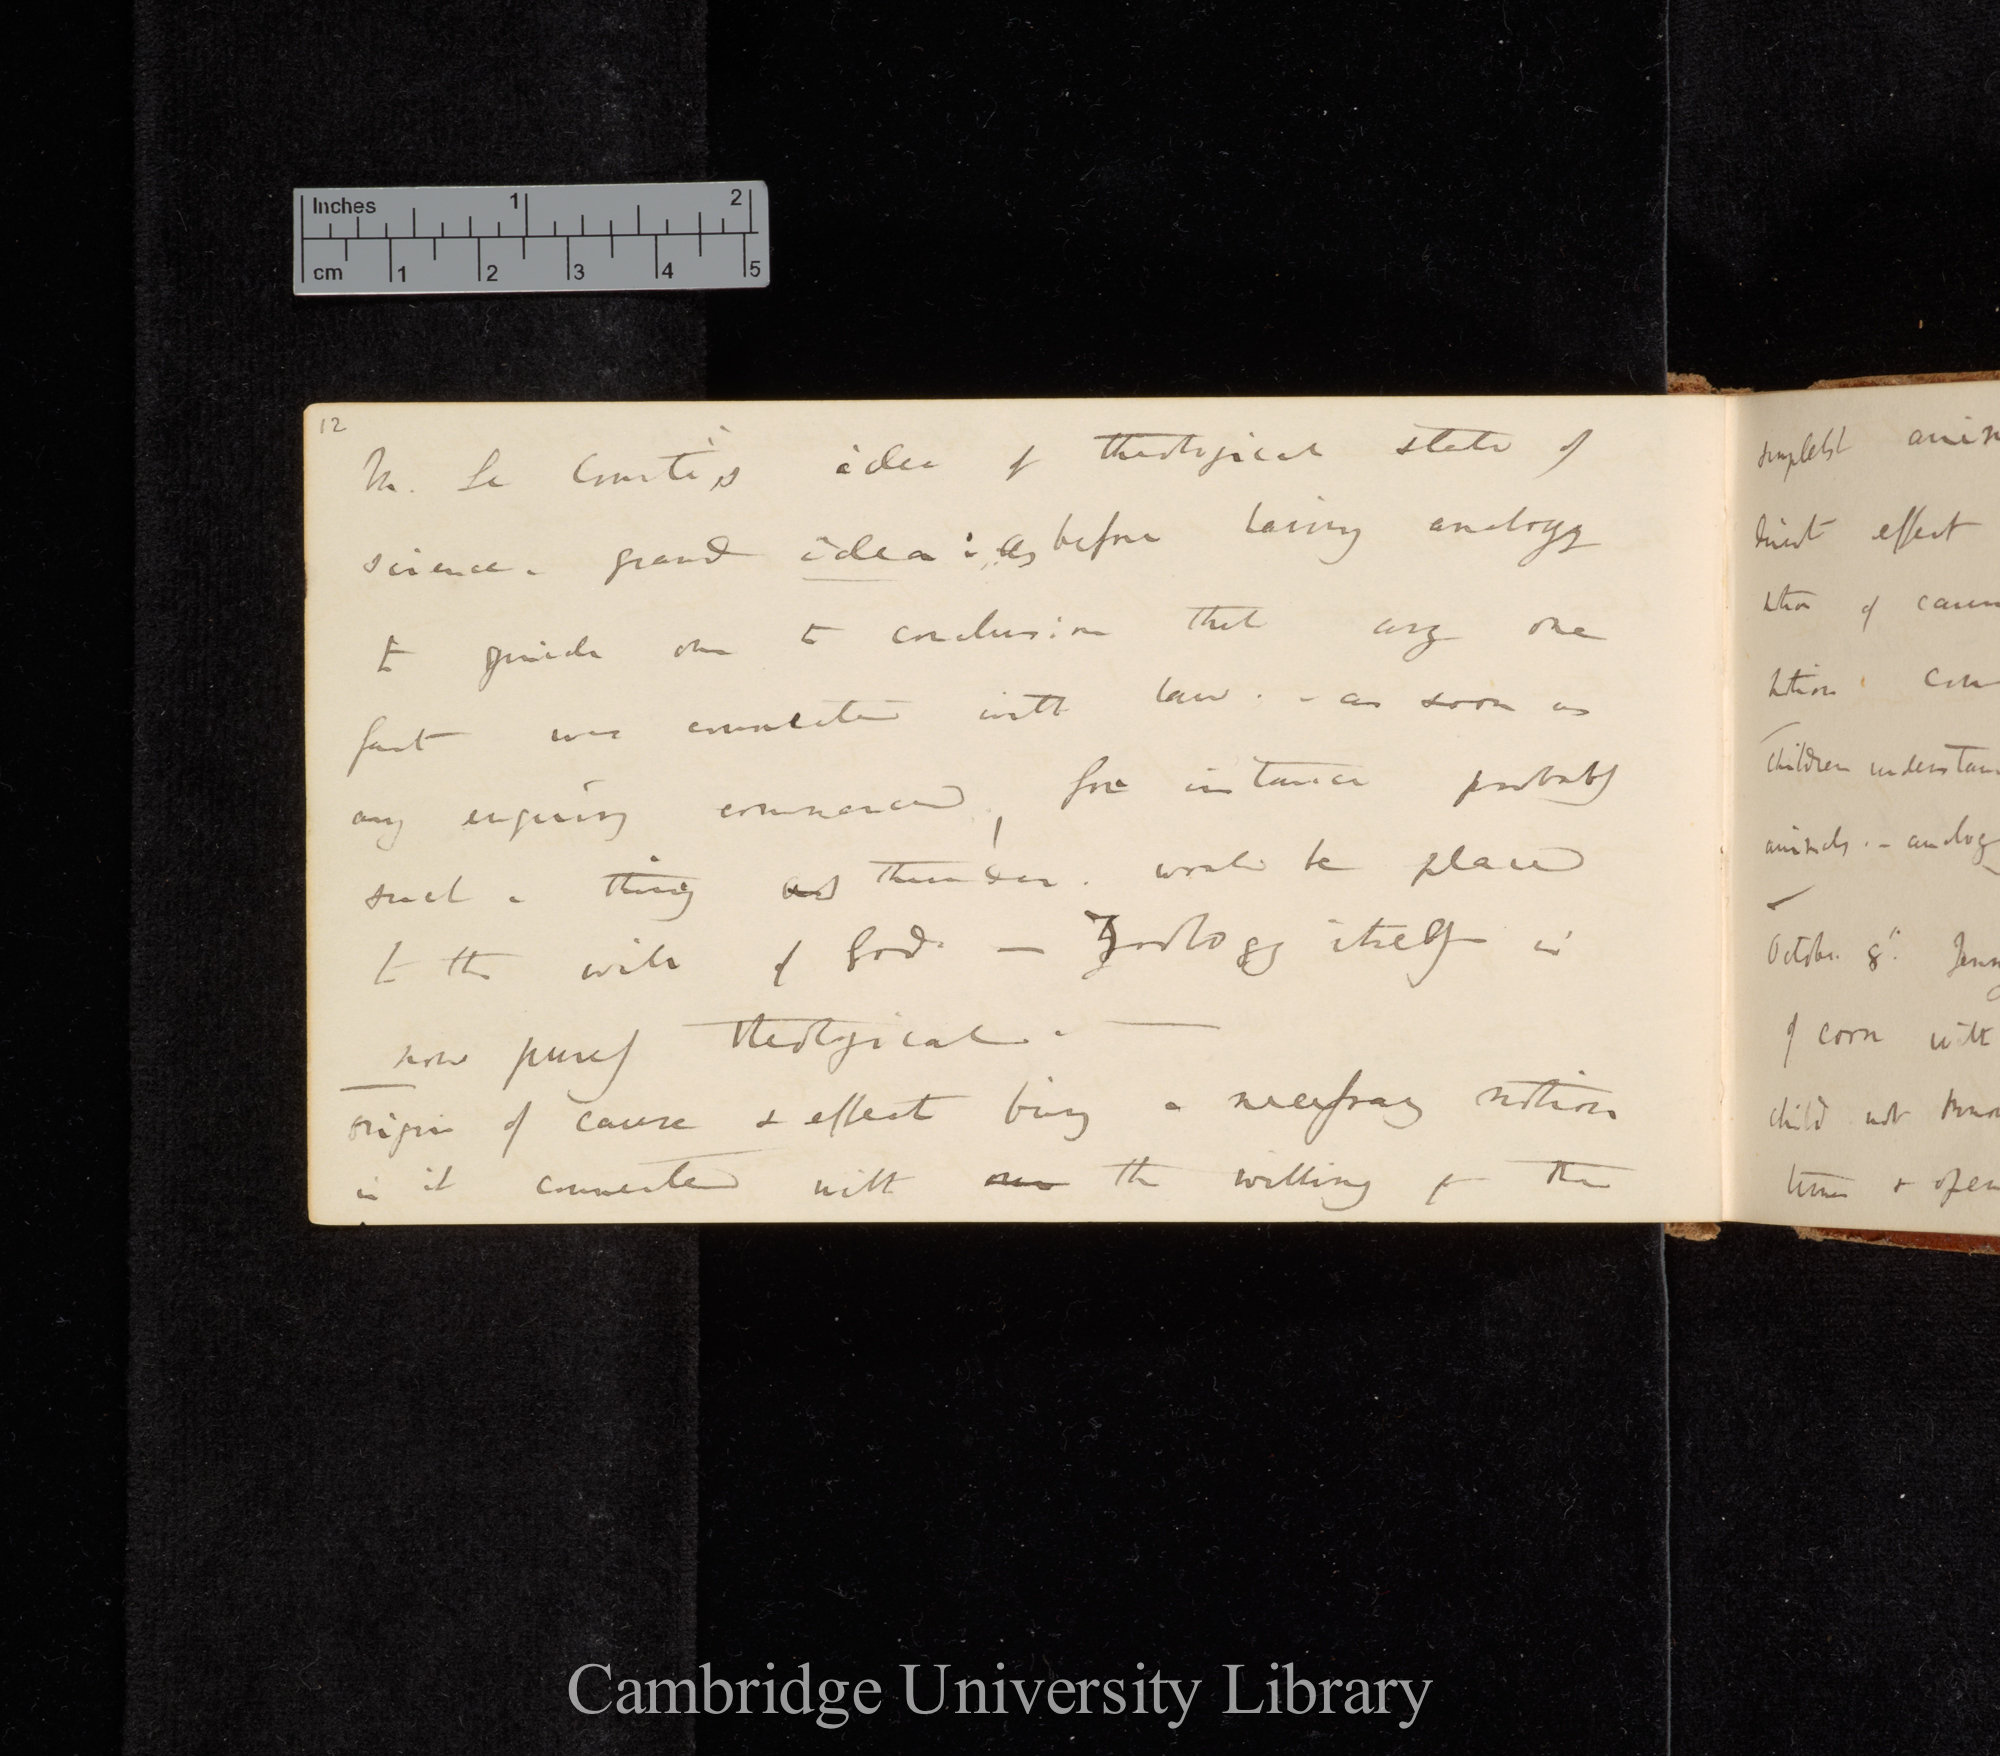 Inches 1 2
cm 1 2 3 4 5
12
M. Le Comte's idea of theological state of
science. grand idea: as before having analogy
to guide one to conclusion that any one
fact was connected with law. - as soon as
any enquiry commenced, for instance probably
such a thing as thunder. would be placed
to the will of God. — Zoology itself is
now purely theological. —
origin of cause & effect being a necessary notion
is it connected with our the willing of the
simplest anim
direct effect
of caus
children understan
animals. - analog
October 8th Jenny
of corn with
child not know
times & open
Cambridge University Library